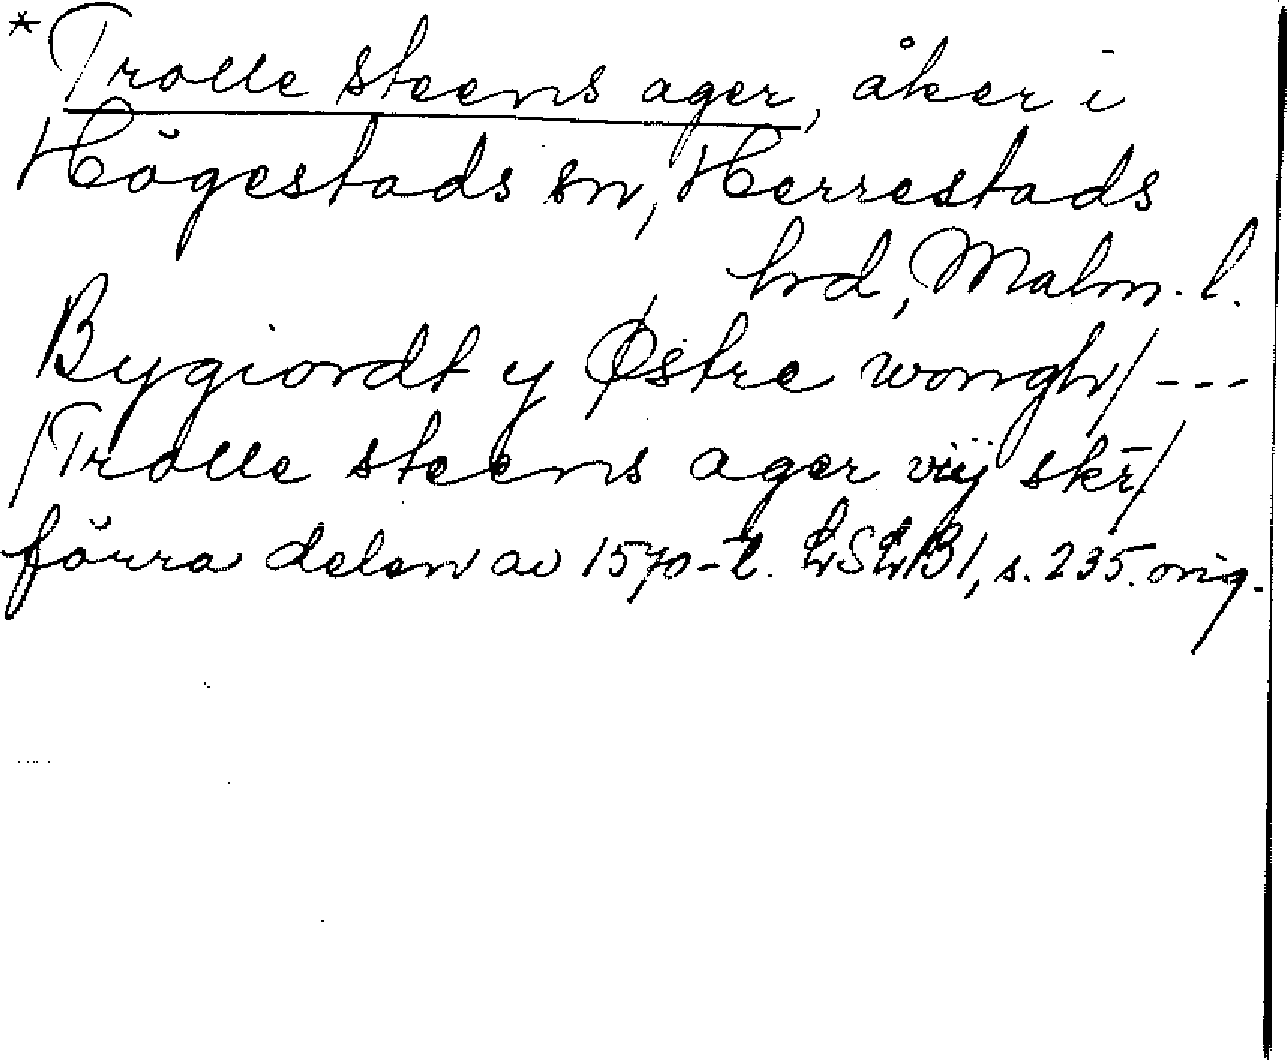 *Trolle steens ager, åker i
Högestads sn, Herrestads
hd, Malm. l.
Bygiordt y Østre wongh/ ---
/Trolle steens ager vij skr/
förra delen av 1570-t. LSLB1, s. 235. orig.